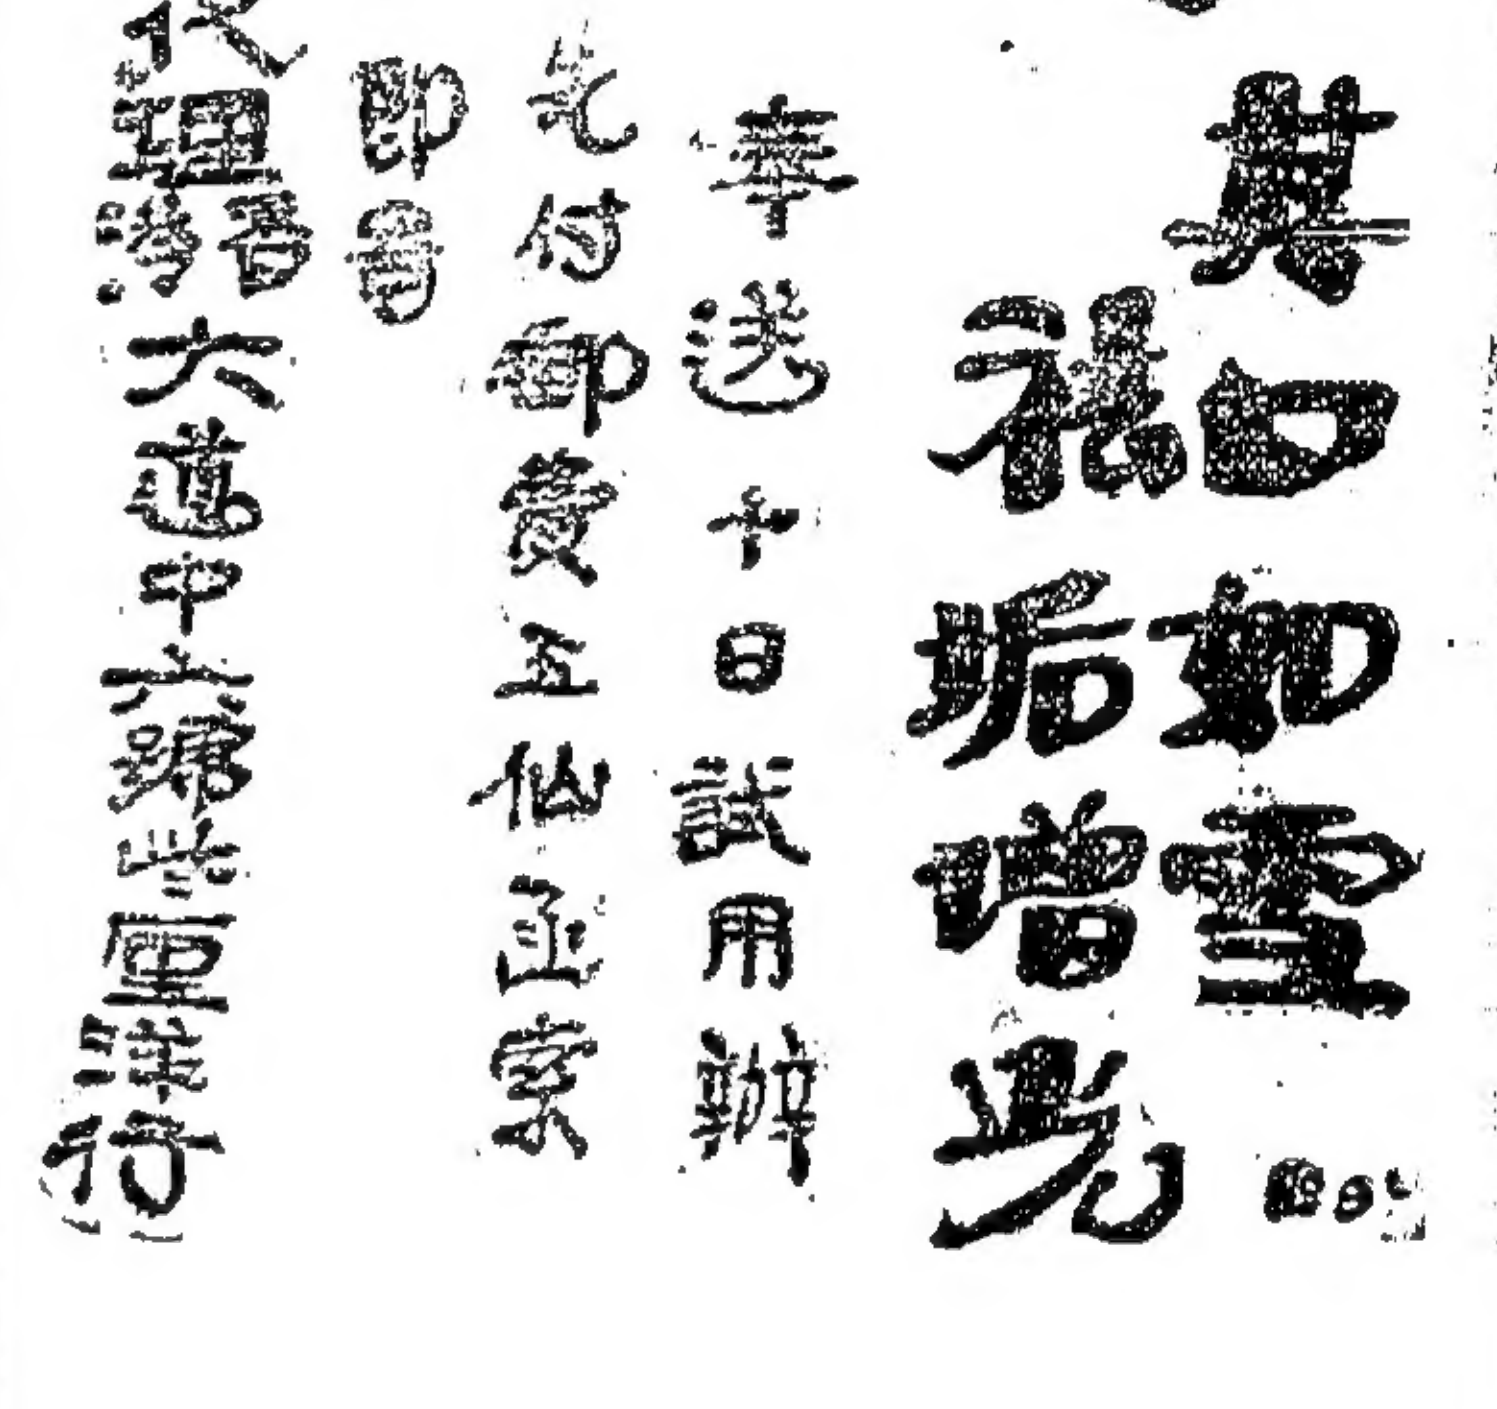 其白如雪
祛垢增光
奉送十日試用辦
先付郵費五仙函索
即
代理香港大道中六號世厘洋行